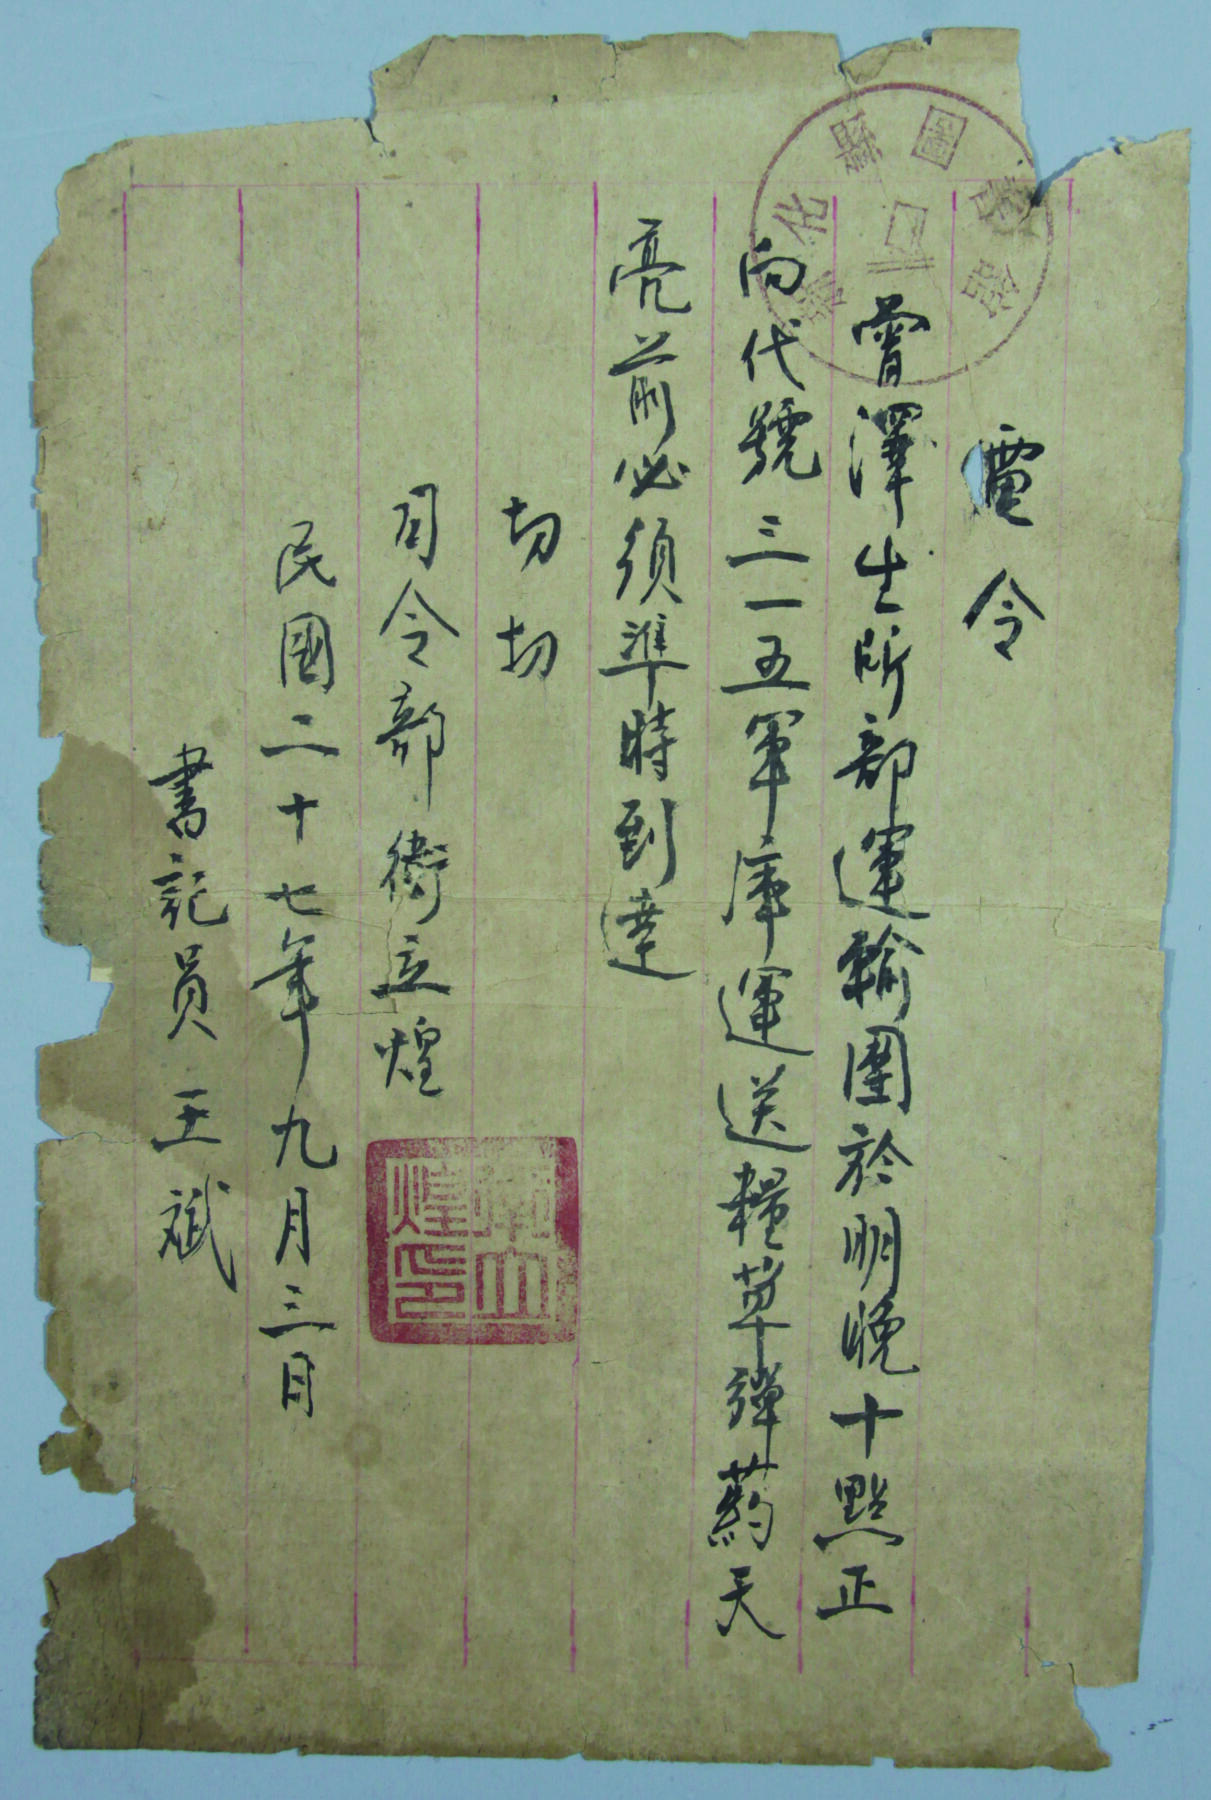 電令
曾澤生所部運輸團於明晚十點正
向代號三一五軍庫運送糧草彈葯天
亮前必須準時到達
切切
司令部衛立煌
民國二十七年九月三日
書記員王斌
衛立煌印
圖書館